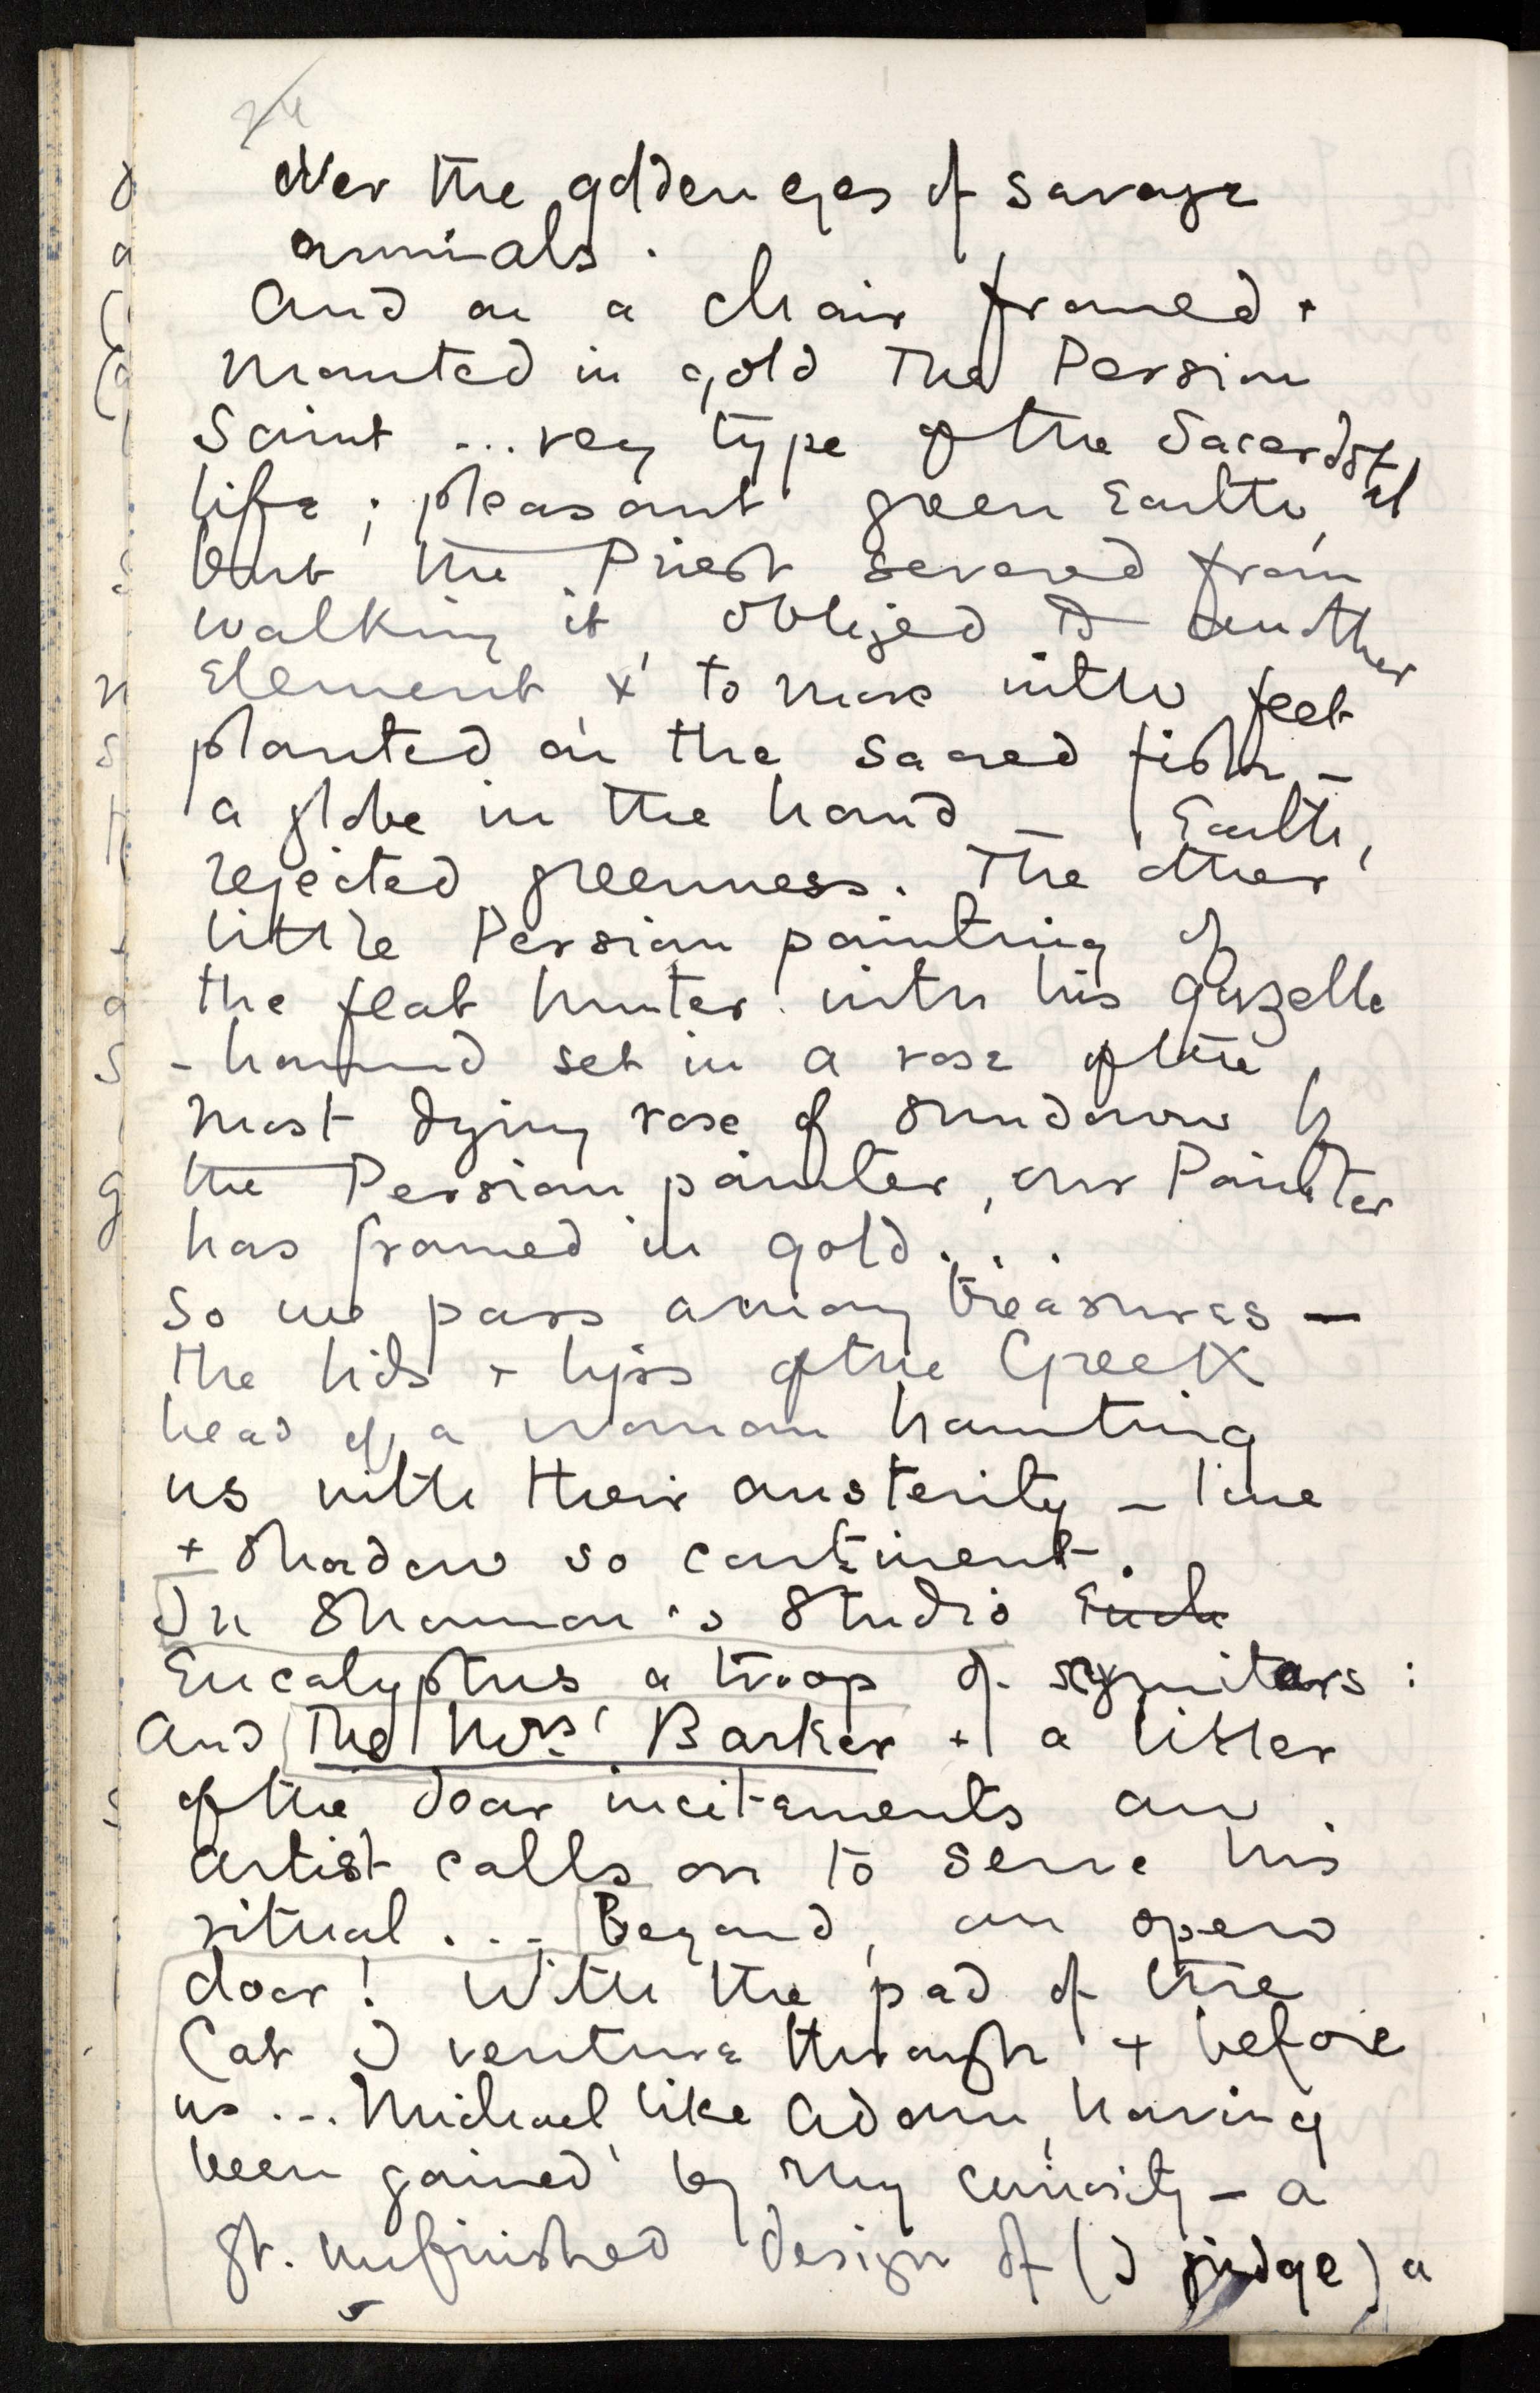 over the golden eyes of savage
animals.
And on a chair framed +
mounted in gold The Persian
Saint ... very type of the Sacerdotal
life; pleasant green Earth,
but the Priest severed from
walking it, obliged to another
Element, + to move with feet
planted on the sacred fish —
a globe in the hand — Earth,
rejected greenness. The other
little Persian painting of
the fleat hunter with his gazelle
- hound set in a rose of the
most dying rose of sundown by
the Persian painter, our Painter
has framed in gold...
So we pass among treasures —
the lids + lips of the Greek
head of a woman haunting
us with their austerity — line
+ shadow so continent.
In Shannon's Studio Such
Eucalyptus a troop of scymitars:
And The Mrs. Barker + a litter
of the dear incitements an
artist calls on to serve his
ritual.... Beyond, an open
door! With the pad of the
Cat I venture through + before
us ... Michael like Adam, having
been gained by my curiosity — a
gt. unfinished design of (I judge) a